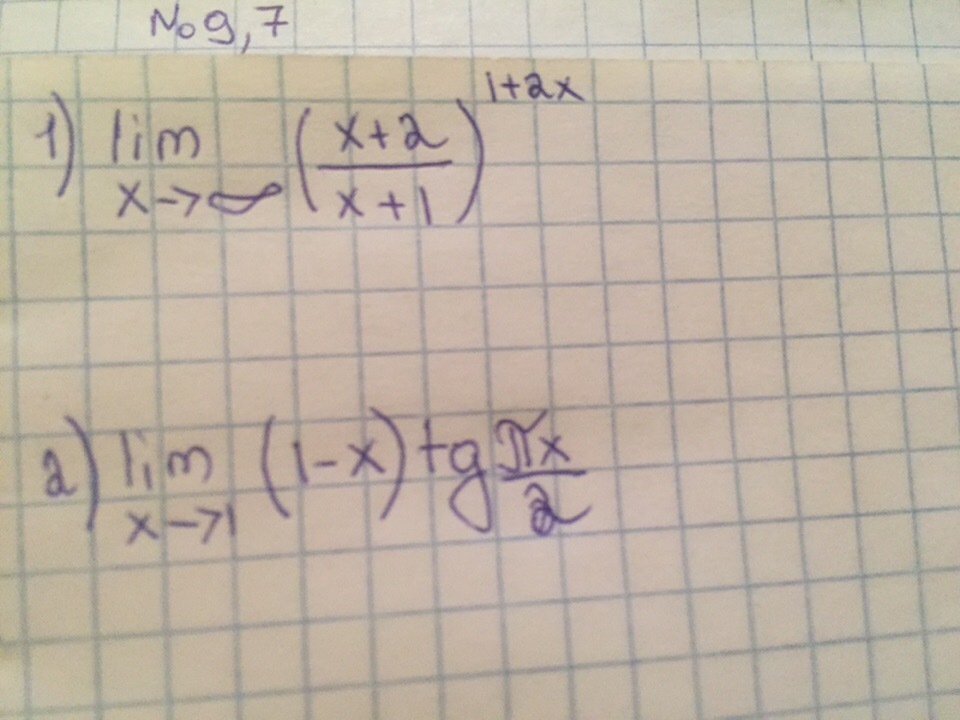 No 9,7
1) lim x→∞ (x+2 / x+1)^1+2x
2) lim x→1 (1-x) tg πx / 2